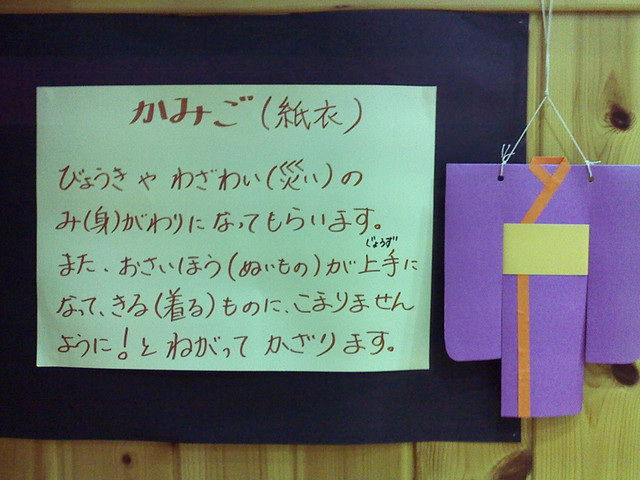 かみご（紙衣）
びょうき や わざわい（災い）の
み（身）がわりに なってもらいます。
また、おさいほう（ぬいもの）が上手に
じょうず
なって、きる（着る）ものに、こまりません
ように！と ねがって かざります。